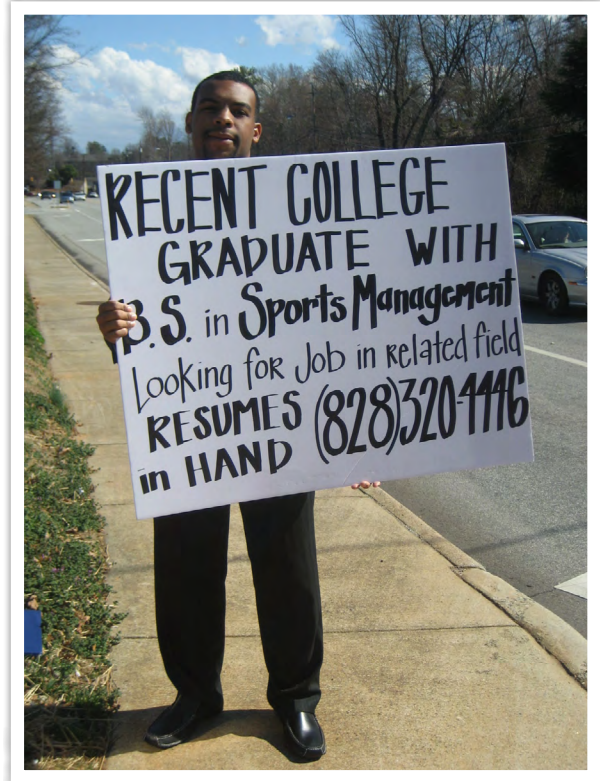 RECENT COLLEGE
GRADUATE WITH
B.S. in Sports Management
Looking for Job in Related field
RESUMES (828)320-4446
in HAND